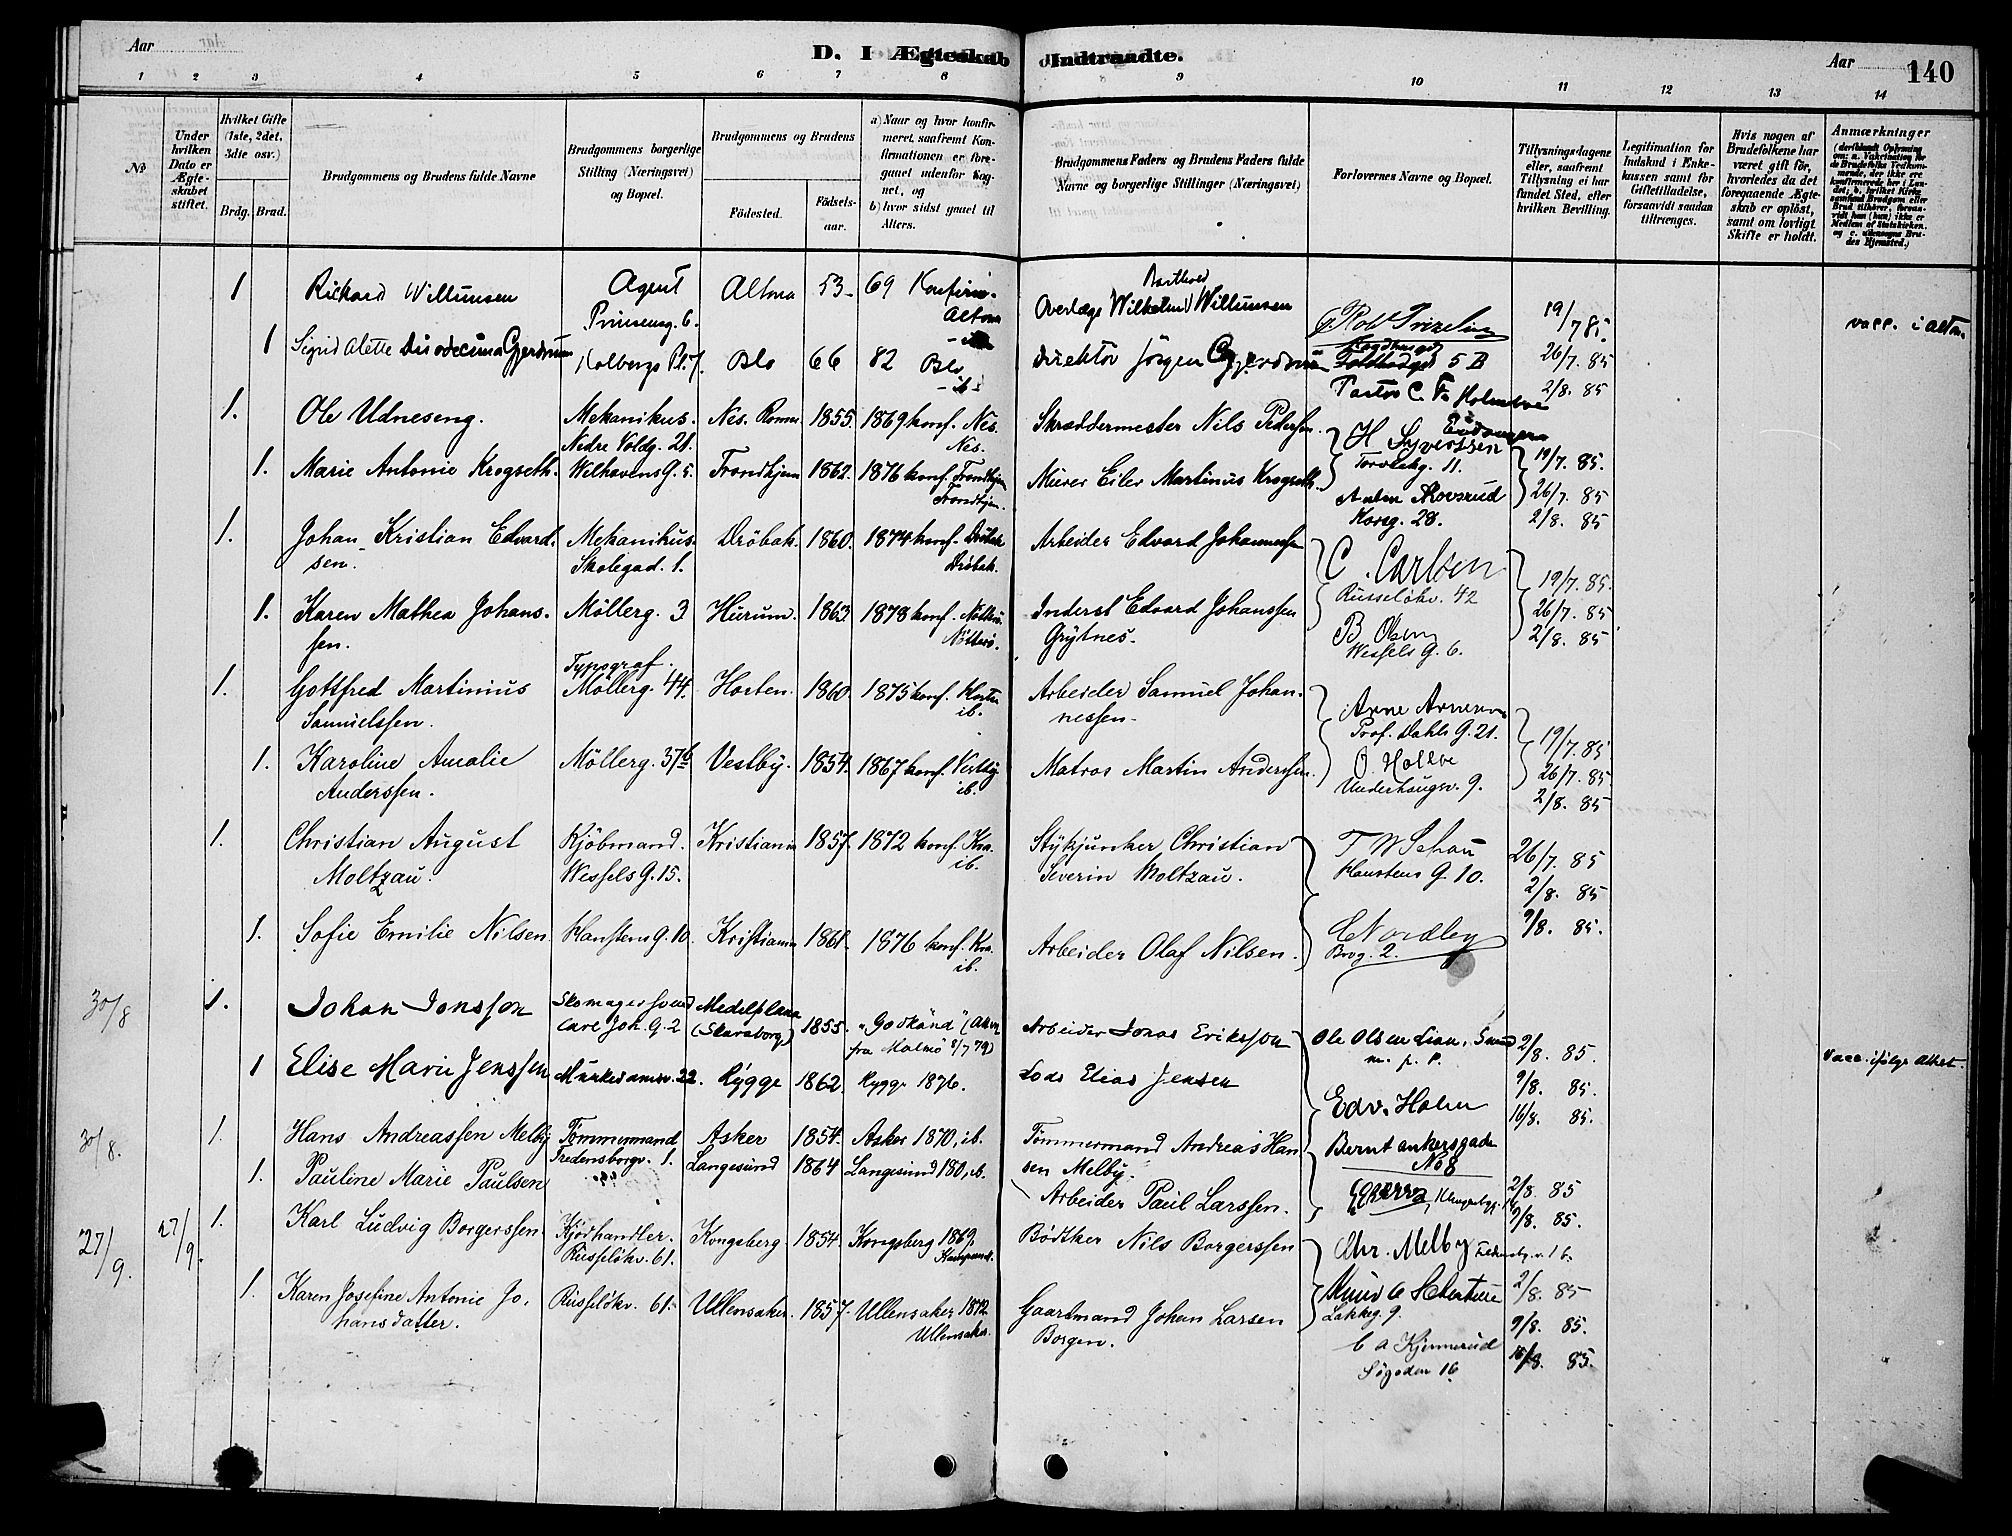 Aar
D. I Ægteskab Indtraadte.
Aar
140
1 2 3 4 5 6 7 8 9 10 11 12 13 14
No
Under hvilken Dato er Ægteskabet stiftet.
Hvilket Gifte (1ste, 2det, 3die osv.)
Brdg. Brud.
Brudgommens og Brudens fulde Navne
Brudgommens borgerlige Stilling (Næringsvei) og Bopæl.
Brudgommens og Brudens
Fødested.
Fødselsaar.
a) Naar og hvor konfirmeret, saafremt Konfirmationen er foregaaet udenfor Sognet, og
b) hvor sidst gaaet til Alters.
Brudgommens Faders og Brudens Faders fulde Navne og borgerlige Stillinger (Næringsvei)
Forlovernes Navne og Bopæl.
Tillysningsdagene eller, saafremt Tillysning ei har fundet Sted, efter hvilken Bevilling.
Legitimation for Indskud i Enkekassen samt for Giftetilladelse, forsaavidt saadan tiltrænges.
Hvis nogen af Brudefolkene har været gift før, hvorledes da det foregaaende Ægteskab er opløst, samt om lovligt Skifte er holdt.
Anmærkninger
1 Rickard Willumsen Agent Prinsensg. 6. Altona 53 69 Konfirm. Altona
Overlæge Barthold Wilhelm Willumsen
19/7 85.
vacc. i Altona
1 Sigrid Alette Duodecima Gjerdrum Holbergs Pl. 7. Oslo 66 82 Oslo ib.
Direktør Jørgen Gjerdrum
5 B 26/7. 85
Pastor C. F. 2/8. 85
1. Ole Udneseng. Mekanikus. Nedre Voldg. 21. Nes. Rom. 1855. 1869 konf. Nes. Nes.
Skræddermester Nils Pedersen.
H Syvertsen Torvetg. 11.
1. Marie Antonie Krogseth. Welhavens G. 5. Trondhjem 1862. 1876 konf. Trondhjem Trondhjem.
Murer Eiler Martinus Krogseth.
Korsg. 28.
19/7. 85. 26/7. 85 2/8. 85
1. Johan Kristian Edvardsen. Mekanikus. Skolegad. 1. Dröbak. 1860. 1874 konf. Dröbak Dröbak.
Arbeider Edvard Johannesen
C. Carlsen Russeløkv. 42
1. Karen Mathea Johanssen. Möllerg. 3 Hurum. 1863 1878 konf. Nötterö Nötterö.
Inderst Edvard Johanssen Grytnes.
B Olsen Wessels G. 6.
19/7. 85. 26/7. 85 2/8. 85
1. Gottfred Martinius Samuelssen. Typograf. Möllerg. 44. Horten. 1860 1875 konf. Horten ib.
Arbeider Samuel Johannessen.
Arne Arnesen Prof. Dahls G. 21.
1. Karoline Amalie Anderssen. Möllerg. 37b Vestby. 1854. 1867 konf. Vestby ib.
Matros Martin Anderssen.
O. Holtve Underhaugsv. 9.
19/7. 85 26/7. 85 2/8. 85
1. Christian August Moltzau. Kjöbmand. Wessels G. 15. Kristiania 1857. 1872 konf. Kra. ib.
Stykjunker Christian Severin Moltzau.
T W Schou Hanstens G. 10.
26/7. 85 2/8. 85
1. Sofie Emilie Nilsen. Hanstens G. 10. Kristiania 1861. 1876 konf. Kra. ib.
Arbeider Olaf Nilsen.
C Nordley Brog. 2.
9/8. 85.
30/8 1. Johan Jonsson Skomagersvend Carl Joh. G. 2 Medelplana (Skaraborg) 1855. "Godkänd" (Attest fra Malmö 1/7 79)
Arbeider Jonas Eriksson
Ole Olsen Lian, m. p. P.
2/8. 85.
1 Elise Marie Jenssen Munkedamsv. 22. Rygge 1862. Rygge 1876.
Lods Elias Jensen
Edv. Holm Bernt ankersgade No 8
9/8. 85. 16/8. 85.
Vacc. ifølge Attest.
30/8. 1. Hans Andreassen Melby Tömmermand Fredensborgv. 1. Asker 1854. Asker 1870, ib.
Tömmermand Andreas Hansen Melby.
1. Pauline Marie Paulsen Langesund 1864 Langesund 180, ib.
Arbeider Paul Larssen.
2/8. 85 9/8. 85.
Chr. Melby
27/9. 27/9. 1. Karl Ludvig Borgerssen. Kjödhandler. Russeløkv. 61. Kongsberg. 1854. Kongsberg 1869.
Bödtker Nils Borgerssen
1. Karen Josefine Antonie Johansdatter. Russeløkv. 61. Ullensaker. 1857. Ullensaker 1872. Ullensaker.
Gaardmand Johan Larsen Borgen.
Lakkeg. 9.
C A Kjennerud Søgaden 16
2/8. 85 9/8. 85. 16/8. 85.